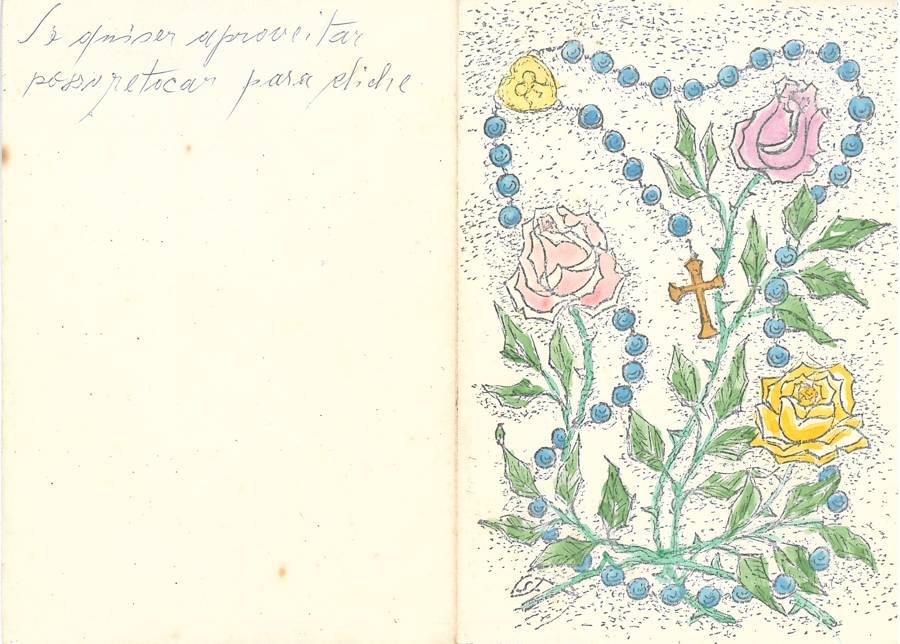 Se quiser aproveitar
posso retocar para cliche